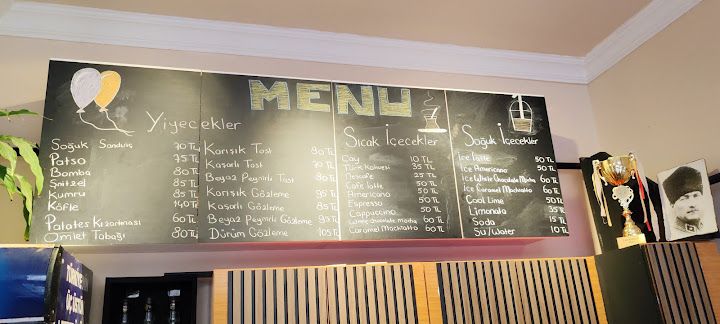 MENU
Yiyecekler
Soğuk Sandviç 70 TL
Patso 75 TL
Bomba 80 TL
Şnitzel 85 TL
Kumru 85 TL
Köfte 140 TL
Patates Kızartması 60 TL
Omlet Tabağı 80 TL
Karışık Tost 80 TL
Kaşarlı Tost
Beyaz Peynirli Tost
Karışık Gözleme
Kaşarlı Gözleme
Beyaz Peynirli Gözleme
Dürüm Gözleme 105 TL
Sıcak İçecekler
Çay 10 TL
Türk Kahvesi 35 TL
Nescafe 25 TL
Cafe Latte 50 TL
Americano 50 TL
Espresso 50 TL
Cappuccino 50 TL
Mocha 60 TL
Caramel Macchiatto 60 TL
Soğuk İçecekler
Ice Latte 50 TL
Ice Americano 50 TL
Ice White Chocolate Mocha 60 TL
Ice Caramel Macchiatto 60 TL
Cool Lime 50 TL
Limonata 35 TL
Soda 15 TL
Su/Water 10 TL